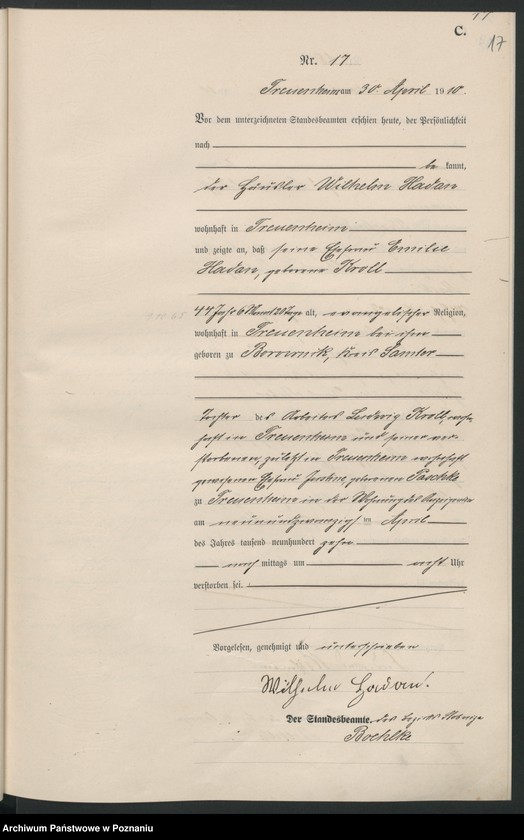 17
C.
17
Nr. 17
Treuenheim am 30. April 1910.
Vor dem unterzeichneten Standesbeamten erschien heute, der Persönlichkeit
nach
be kannt,
der Häusler Wilhelm Hadan
wohnhaft in Treuenheim
und zeigte an, daß seine Ehefrau Emilie
Hadan, geborene Kroll
44 Jahr 6 Monat 20 Tage alt, evangelischer Religion,
wohnhaft in Treuenheim bei ihm
geboren zu Borownik, Kreis Samter
Tochter des Arbeiters Ludwig Kroll, wohn-
haft in Treuenheim und seiner ver-
storbenen, zuletzt in Treuenheim wohnhaft
gewesenen Ehefrau geborenen Paschke
zu Treuenheim in der Wohnung des Anzeigenden
am neunundzwanzigsten April
des Jahres tausend neunhundert zehn
nach mittags um acht Uhr
verstorben sei.
Vorgelesen, genehmigt und unterschrieben
Wilhelm Hadan.
Der Standesbeamte. des
Boehlke
Archiwum Państwowe w Poznaniu